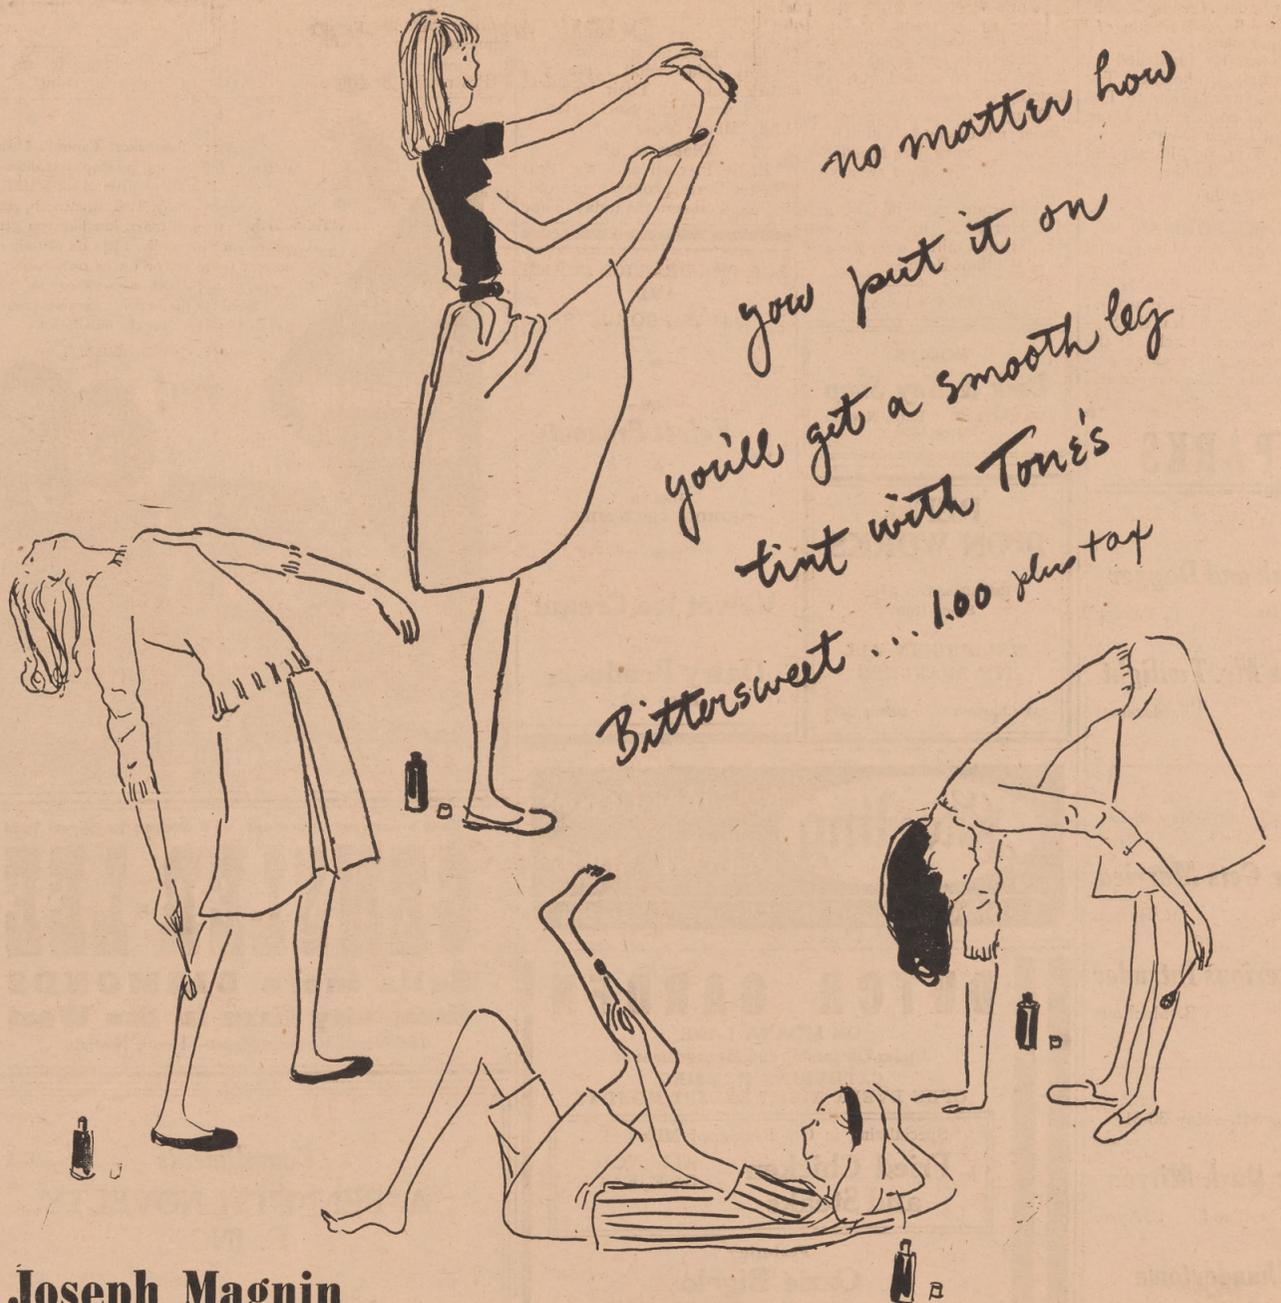 no matter how
you put it on
you'll get a smooth leg
tint with Tone's
Bittersweet ... 1.00 plus tax
Joseph Magnin